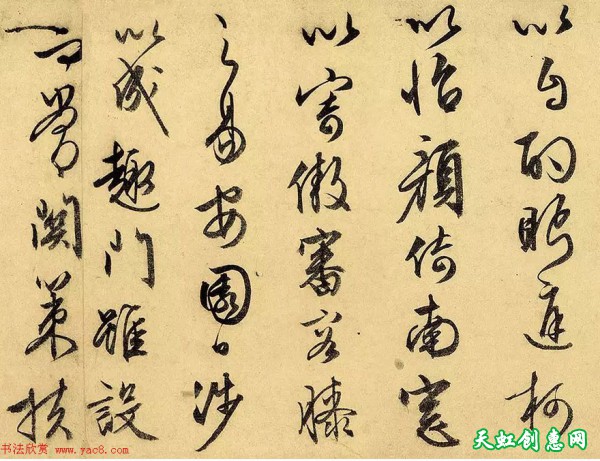 以自酌眄庭柯
以怡顏倚南窓
以寄傲審容膝
之易安園日涉
以成趣門雖設
而常關策扶
书法欣赏 www.yac8.com
天虹创惠网